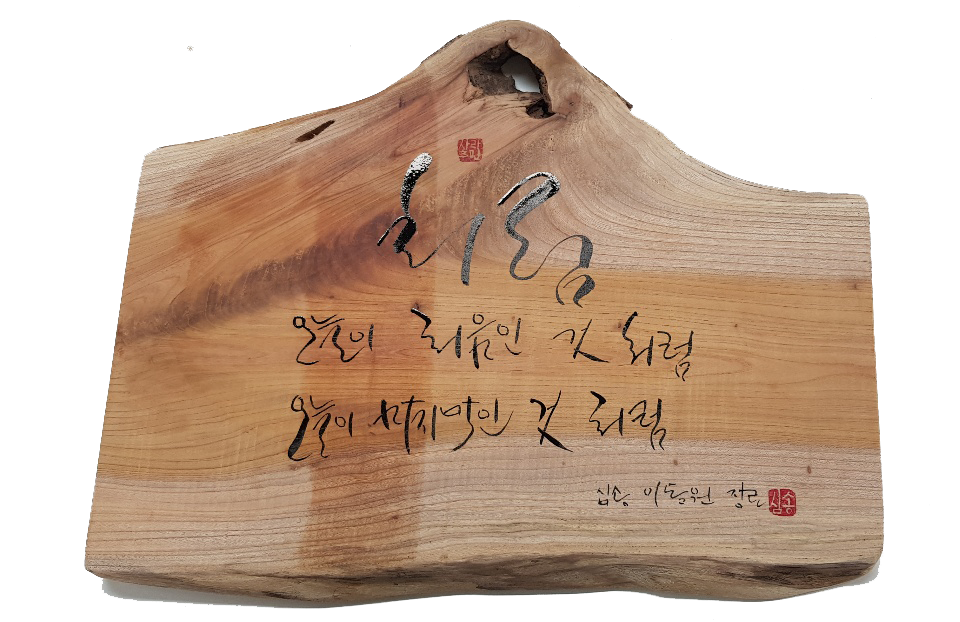 처럼
오늘이 처음인 것 처럼
오늘이 마지막인 것 처럼
심송 이동원 장로
심송